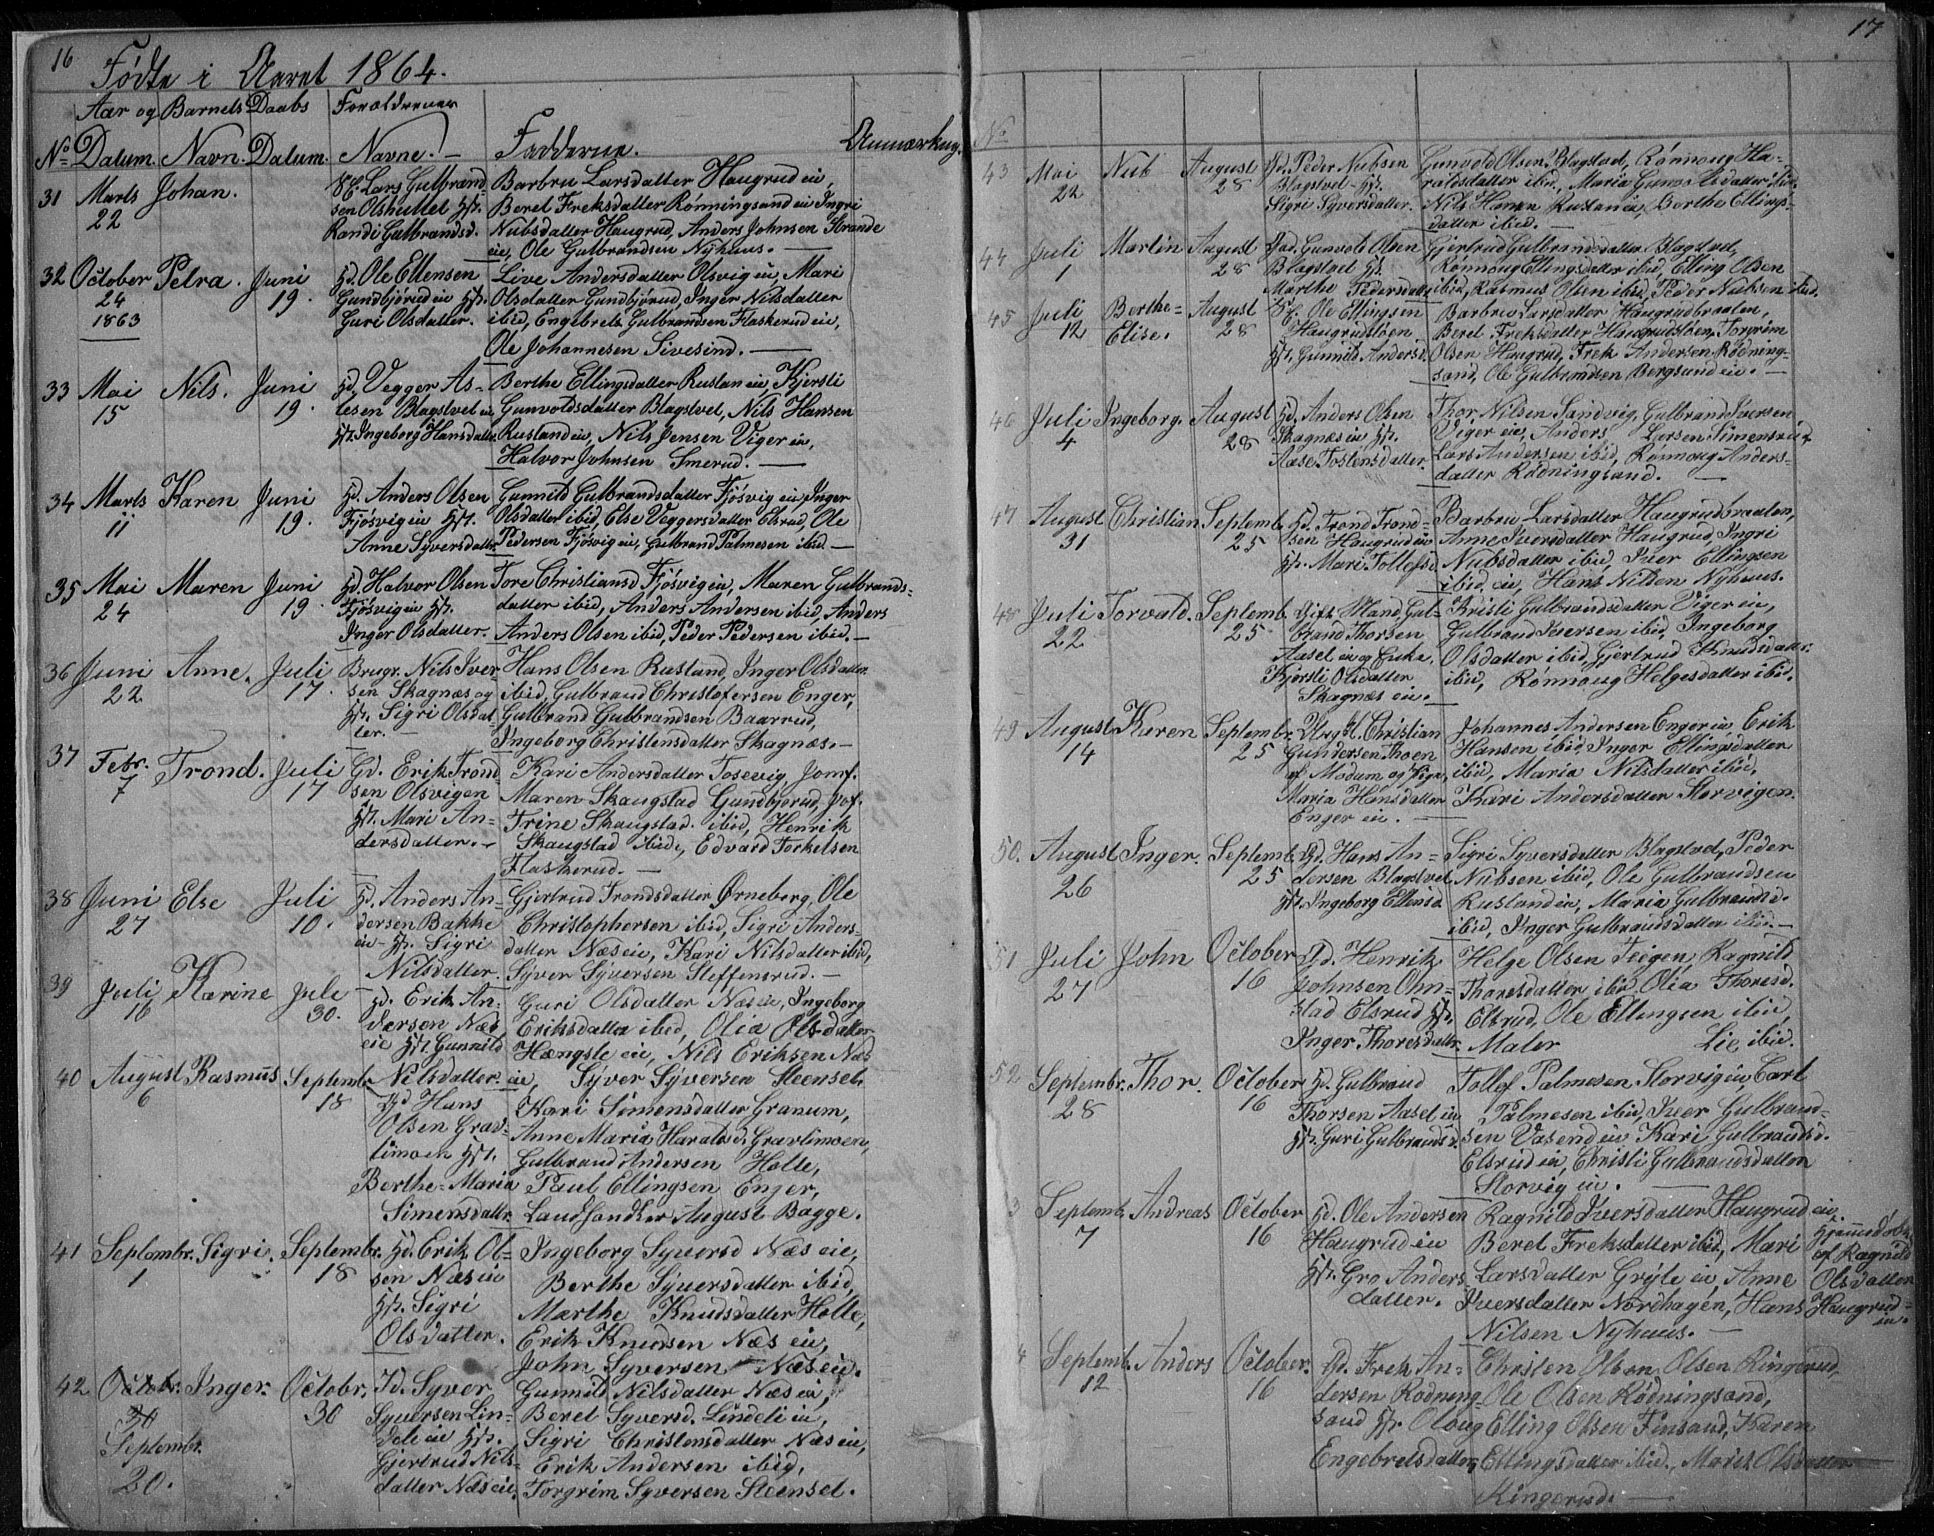 16
Fødte i Aaret 1864.
Aar og Barnets Daabs Forældrenes
No Datum. Navn. Datum. Navne. Fadderne. Anmærkng.
31 Marts 22 Johan.
Lars Gulbrand-
sen Olshuttel
Randi Gulbrandsd.
Barbru Larsdatter Haugrud eie,
Beret Freksdatter Rønningsand eie Ingri
Nubsdatter Haugrud, Anders Johnsen Strande
eie, Ole Gulbrandsen Nyhuus.
32 October 24 1863 Petra. Juni 19.
Gd. Ole Ellensen
Gundbjørud eie
Guri Olsdatter.
Live Andersdatter Olsvig eie, Mari
Olsdatter Gundbjørud, Inger Nilsdatter
ibid, Engebret Gulbrandsen Flaskerud eie,
Ole Johannesen Sivesind.
33 Mai 15 Nils. Juni 19.
Gd. Vegger As-
lesen Blagstvet eie
Ingeborg Hansdatter
Berthe Ellingsdatter Rustan eie, Kjersti
Gunvoldsdatter Blagstvet, Nils Hansen
Rusland eie, Nils Jensen Viger eie,
Halvor Johnsen Smerud.
34 Marts 11 Karen Juni 19.
Gd. Anders Olsen
Fjøsvig eie
Anne Syversdatter
Gunnild Gulbrandsdatter Fjøsvig eie, Inger
Olsdatter ibid, Else Veggersdatter Elsrud, Ole
Pedersen Fjøsvig eie, Gulbrand Palmesen ibid.
35 Mai 24 Maren Juni 19.
Gd. Halvor Olsen
Fjøsvig eie
Inger Olsdatter.
Tore Christiansd Fjøsvig eie, Maren Gulbrands-
datter ibid, Anders Andersen ibid, Anders
Anders Olsen ibid, Peder Pedersen ibid.
36 Juni 22 Anne. Juli 17.
Brugr. Nils Iver-
sen Skagnæs og
Sigri Olsdat-
ter.
Hans Olsen Rusland, Inger Olsdatter
ibid, Gulbrand Christofersen Enger,
Gulbrand Gulbrandsen Baarrud,
Ingeborg Christensdatter Skagnæs.
37 Febr. 7 Trond. Juli 17
Gd. Erik Trond-
sen Olsvigen
Mari An-
dersdatter.
Kari Andersdatter Tosevig, Jomf.
Maren Skaugstad Gundbjørud, Jof.
Trine Skaugstad ibid, Henrik
Skaugstad ibid, Edvard Torkelsen
Flaskerud.
38 Juni 27 Else Juli 10.
Gd. Anders An-
dersen Bakke
eie Sigri
Nilsdatter.
Gjertrud Trondsdatter Ørneberg, Ole
Christophersen ibid, Sigri Anders-
datter Næs eie, Kari Nilsdatter ibid,
Syver Syversen Steffensrud.
39 Juli 16 Karine Juli 30.
Gd. Erik An-
dersen Næs
eie Gunnild
Nilsdatter.
Guri Olsdatter Næs eie, Ingeborg
Eriksdatter ibid, Olia Olsdatter
Hængsle eie, Nils Eriksen Næs
eie, Syver Syversen Steensel.
40 August 6 Rasmus Septembr 18
Gd Hans
Olsen Grav-
limoen
Berthe Maria
Simensdattr.
Kari Simensdatter Granum,
Anne Maria Haraldsd. Gravlimoen,
Gulbrand Andersen Holle,
Paul Ellingsen Enger,
Landhandler August Bagge.
41 Septembr. 1 Sigri. Septembr. 18
Gd. Erik Ol-
sen Næs eie
Sigri
Olsdatter.
Ingeborg Syversd Næs eie,
Berthe Syversdatter ibid,
Marthe Knudsdatter Holle,
Erik Knudsen Næs eie,
John Syversen Næs eie.
42 Octobr. 30 Septembr. 20. Inger. Octobr. 30
Id. Syver
Syversen Lin-
deli eie
Gjertrud Nils-
datter Næs eie.
Gunnild Nilsdatter Næs eie,
Beret Syversd. Lindeli eie,
Sigri Christensdatter Næs eie,
Erik Andersen ibid,
Torgrim Syversen Steensel.
17
No
43 Mai 22 Nub August 28
Gd. Peder Nubsen
Blagstvet
Sigri Syversdatter.
Gunvold Olsen Blagstvet, Rønnoug Ha-
raldsdatter ibid, Maria Gunvoldsdatter ibid,
Nils Hansen Rustan eie, Berthe Ellings-
datter ibid.
44 Juli 1 Martin August 28
Gd. Gunvold Olsen
Blagstvet
Marthe Pedersdatter
Gjertrud Gulbrandsdatter Blagstvet,
Rønnoug Ellingsdatter ibid, Elling Olsen
ibid, Rasmus Olsen ibid, Peder Nubsen ibid.
45 Juli 12 Berthe Elise. August 28
Ole Ellingsen
Haugrudsløen
Gunnild Andersd.
Barbru Larsdatter Haugrudbraaten,
Beret Freksdatter Haugrudsløen, Torgrim
Olsen Haugrud, Frek Andersen Rødning-
sand, Ole Gulbrandsen Bergsund eie.
46 Juli 4 Ingeborg. August 28
Gd. Anders Olsen
Skagnæs eie
Aase Tostensdatter.
Thor Nilsen Sandvig, Gulbrand Iversen
Viger eie, Anders Larsen Simensrud
Lars Andersen ibid, Rønnoug Anders-
datter Rødningsand.
47 August 31 Christian Septemb. 25
Gd. Trond Trond-
sen Haugrud eie
Mari Tollefsd.
Barbru Larsdatter Haugrudbraaten,
Anne Iversdatter Haugrud, Ingri
Nubsdatter ibid, Iver Ellingsen
ibid eie, Hans Nilsen Nyhuus.
48 Juli 22 Torvald. Septemb. 25
Gift Mand Gul-
brand Thorsen
Aasel eie og Enke
Kjersti Olsdatter
Skagnæs eie.
Kristi Gulbrandsdatter Viger eie,
Gulbrand Iversen ibid, Ingeborg
Olsdatter ibid, Gjertrud Knudsdatter
ibid, Rønnoug Helgesdatter ibid.
49 August 14 Karen Septembr. 25
Ung K. Christian
Gundersen Thoen
af Modum og Pige
Maria Hansdatter
Enger eie.
Johannes Andersen Enger eie, Erik
Hansen ibid, Inger Ellingsdatter
ibid, Maria Nilsdatter ibid,
Kari Andersdatter Storvigen.
50. August 26 Inger. Septemb. 25
Gd. Hans An-
dersen Blagstvet
Ingeborg Ellensd.
Sigri Syversdatter Blagstvet, Peder
Nubsen ibid, Ole Gulbrandsen
Rusland eie, Maria Gulbrandsd.
ibid, Inger Gulbrandsdatter ibid.
51 Juli 27 John October 16
Gd. Henrik
Johnsen Ohn-
stad Elsrud
Inger Thoresdatter.
Helge Olsen Teigen, Ragnild
Thoresdatter ibid, Olia Thoresd.
Elsrud, Ole Ellingsen ibid,
Maler Lie ibid.
52 Septembr. 28 Thor. October 16
Gd. Gulbrand
Thorsen Aasel eie
Guri Gulbrandsd.
Tollef Palmesen Storvig eie, Carl
Palmesen ibid, Iver Gulbrand-
sen Vasend eie, Kari Gulbrandsd.
Elsrud eie, Christi Gulbrandsdatter
Storvig eie.
3 Septemb. 7 Andreas October 16
Gd. Ole Andersen
Haugrud eie
Gro Anders-
datter.
Ragnild Iversdatter Haugrud eie,
Beret Freksdatter ibid, Mari
Larsdatter Gryte eie, Anne
Iversdatter Nordhagen, Hans
Nilsen Nyhuus.
Hjemmedøbt
af Ragnild
Olsdatter
Haugrud-
eie.
4 Septemb. 12 Anders October. 16
Gd. Frek An-
dersen Rødning-
sand Oloug
Engebretsdatter
Christen Olsen Olsen Ringerud,
Ole Olsen Rødningsand,
Elling Olsen Finsand, Karen
Ellingsdatter ibid, Marit Olsdatter
Ringerud.